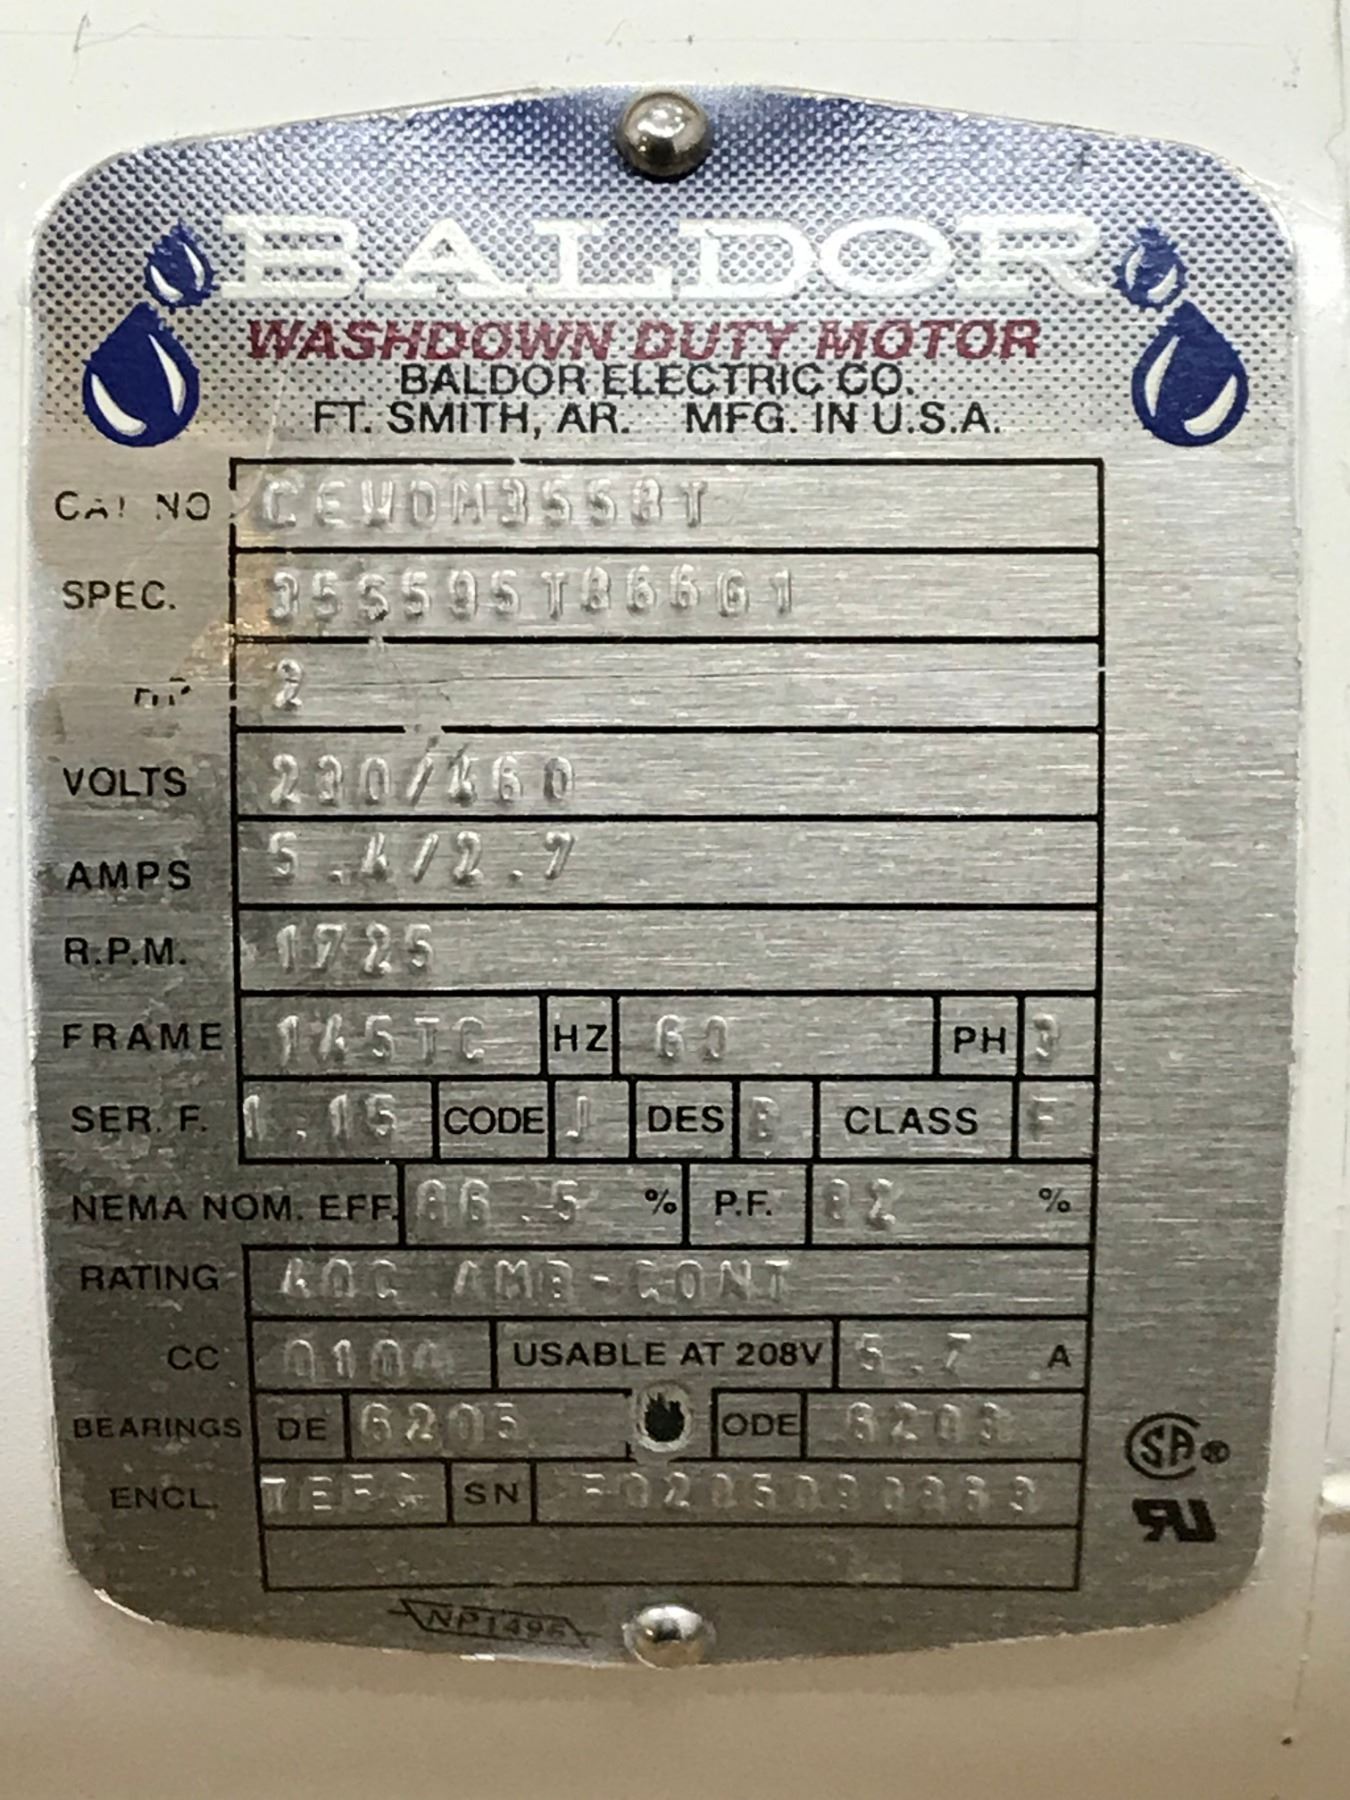 BALDOR
WASHDOWN DUTY MOTOR
BALDOR ELECTRIC CO.
FT. SMITH, AR. MFG. IN U.S.A.
CAT NO CEWDM3558T
SPEC. 35S595T866G1
HP 2
VOLTS 230/460
AMPS 5.4/2.7
R.P.M. 1725
FRAME 145TC HZ 60 PH 3
SER. F. 1.15 CODE J DES B CLASS F
NEMA NOM. EFF. 86.5 % P.F. 82 %
RATING 40C AMB-CONT
CC 010A USABLE AT 208V 5.7 A
BEARINGS DE 6205 ODE 6203
ENCL. TEFC SN
SA ®
NP1495